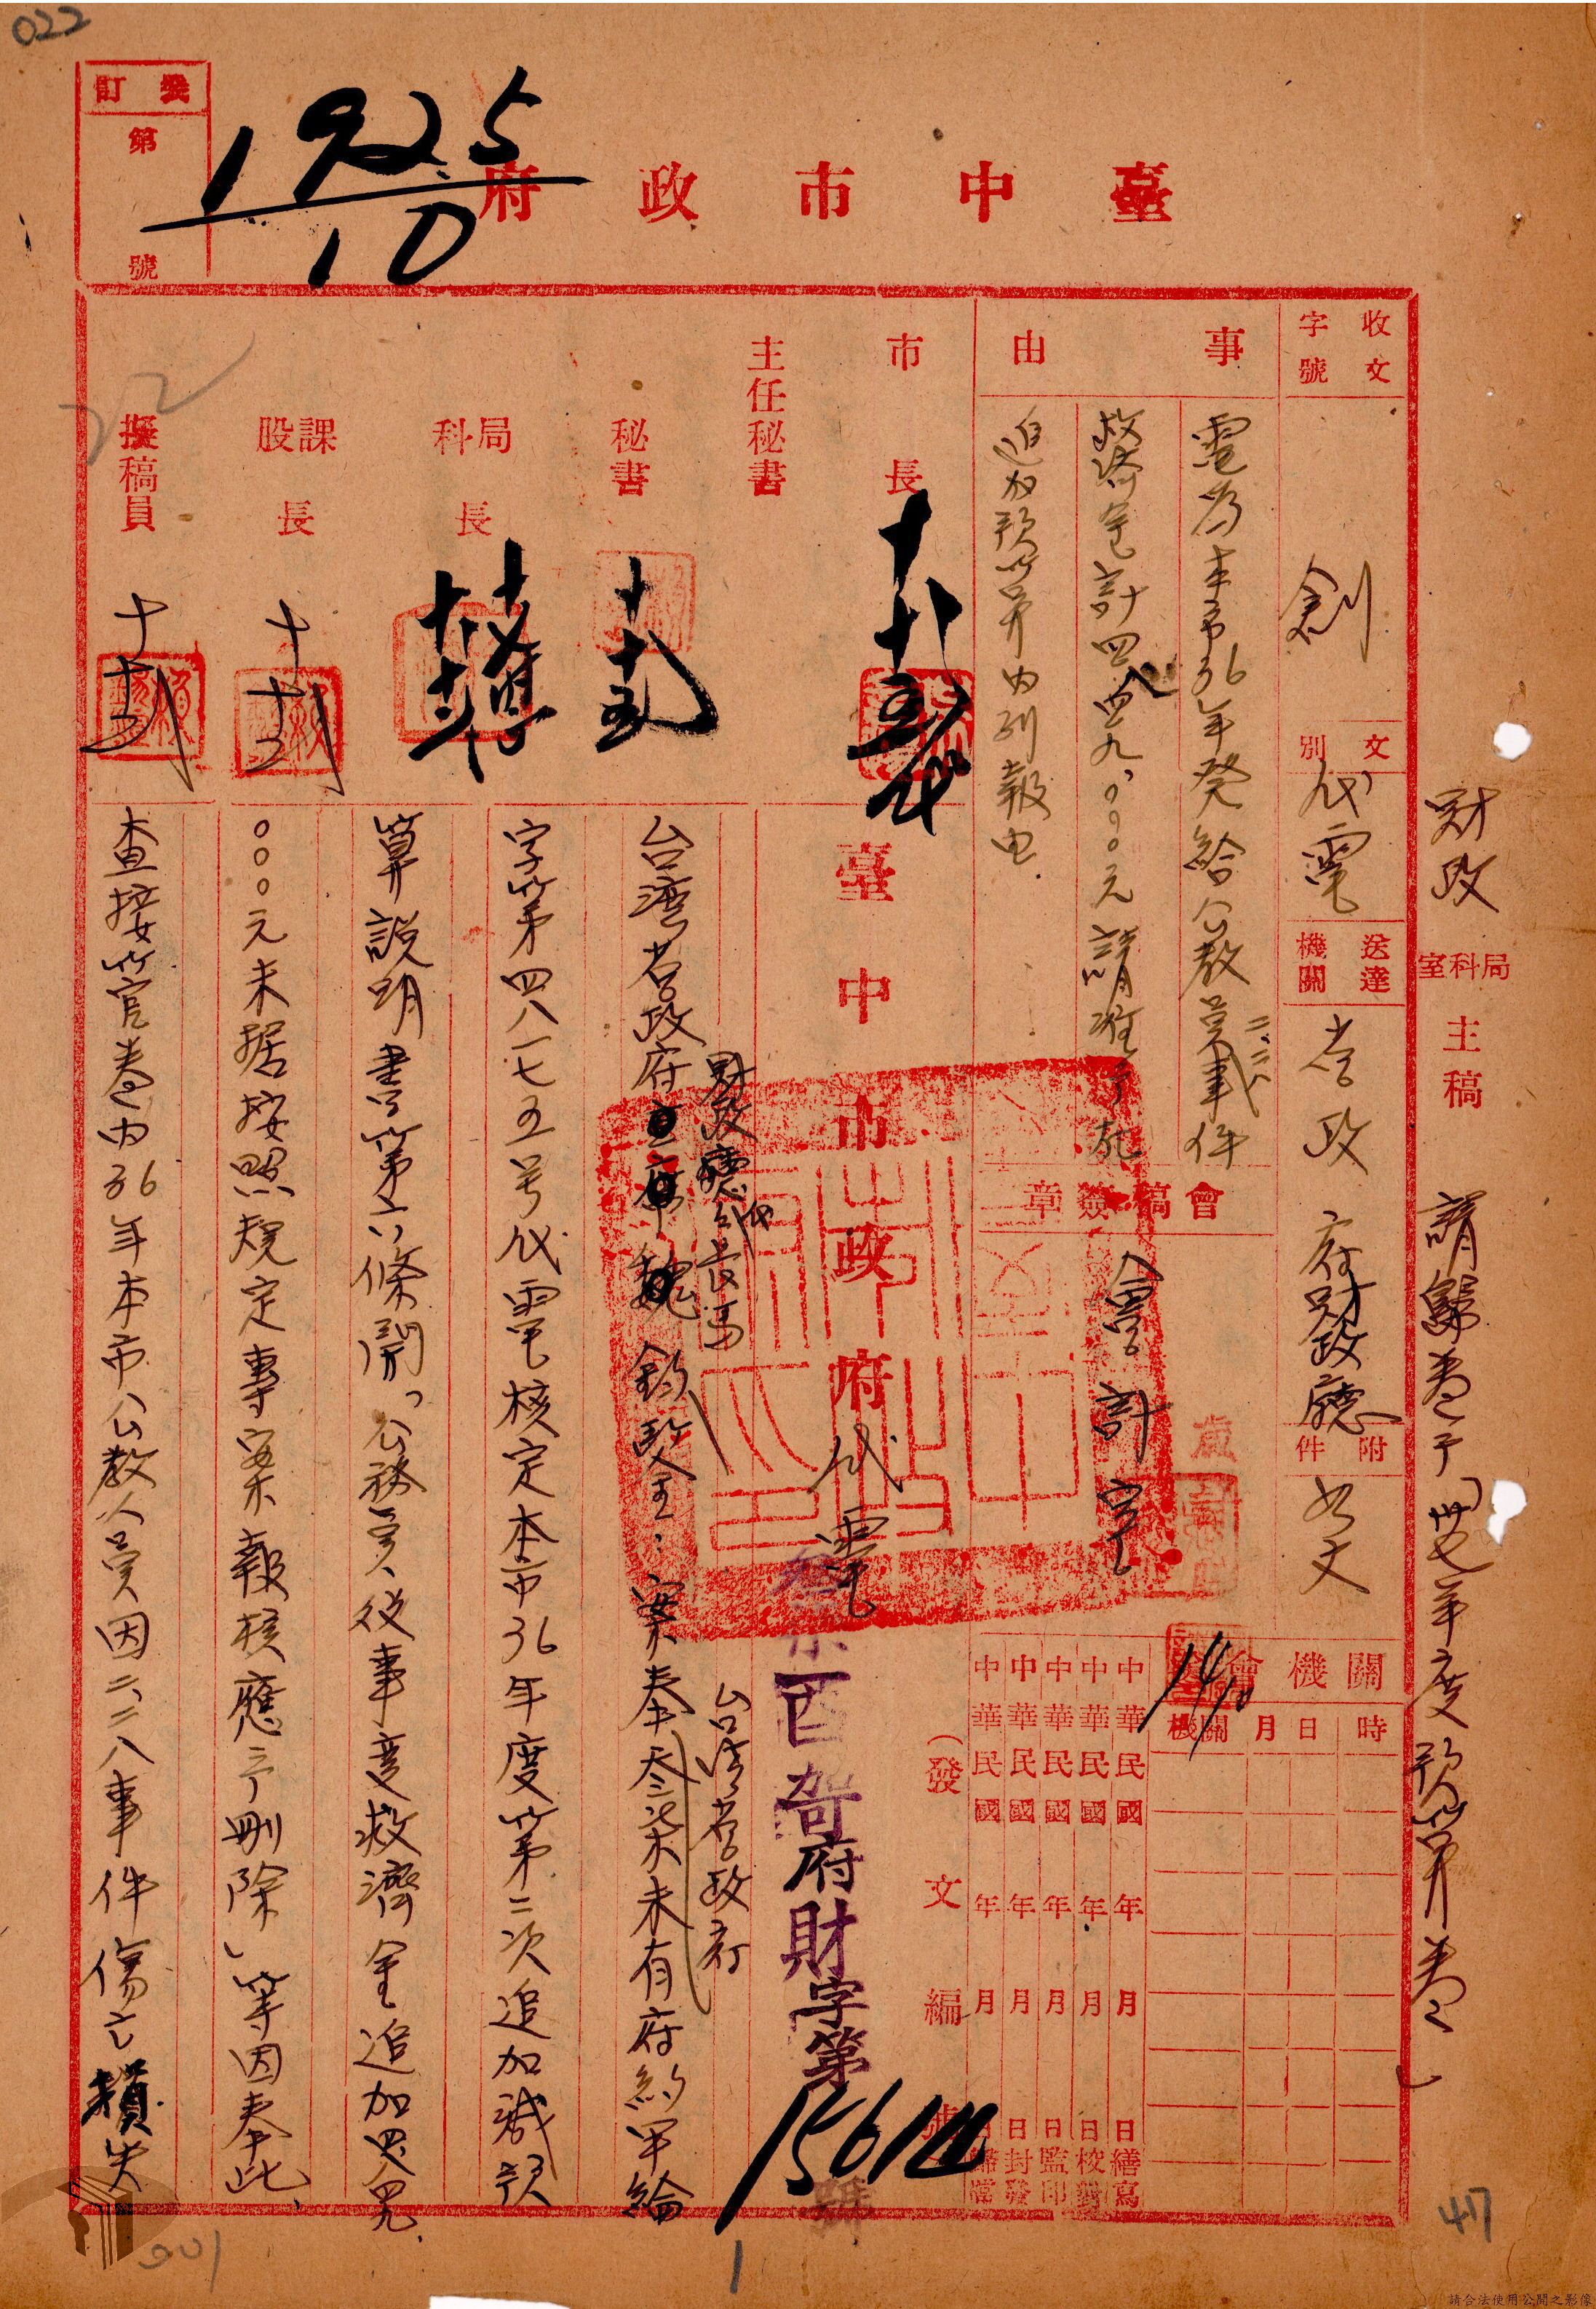 022
裝訂
第
號
1925
10
臺中市政府
財政
局科室
主稿
請歸卷于「卅七年度預算卷」
收文
字號
創
文別
代電
送達機關
省政府財政廳
附件
如文
事由
電為本市36年發給公教員二.二八事件
救濟金計四四九、〇〇〇元請准予於
追加預算內列報由
會稿簽章
會計室
14/10
機關
機關
月日時
市長
主任秘書
秘書
局科長
課股長
擬稿員
中華民國 年 月 日繕寫
中華民國 年 月 日校對
中華民國 年 月 日監印
中華民國 年 月 日封發
中華民國 年 月 日歸檔
(發文編號
臺中市政府代電
酉 府財字第15614號
財政廳代廳長馬
台灣省政府
台灣省政府主席魏鈞鑒:案奉叁柒未有府約甲綸
字第四八一七五号代電核定本市36年度第二次追加減預
算說明書第六條開「公務員役事變救濟金追加四四九、
〇〇〇元未据按照規定專案報核應予刪除」等因奉此、
查接管卷內36年本市公教人員因二、二八事件傷亡損失
001
1
417
請合法使用公開之影像